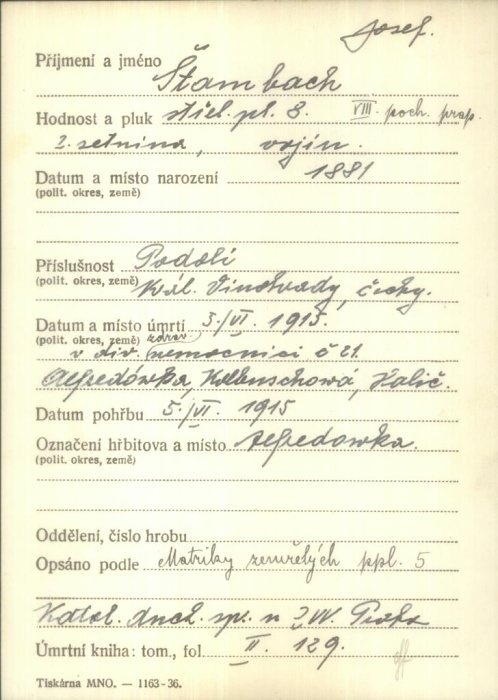 Josef.
Příjmení a jméno Štambach
Hodnost a pluk střel. pl. 8. VIII. poch. prap.
2. setnina, vojín.
Datum a místo narození 1881
(polit. okres, země)
Příslušnost Podolí
(polit. okres, země) Král. Vinohrady, Čechy.
Datum a místo úmrtí 3./VI. 1915.
(polit. okres, země) zdrav.
v div. nemocnici č 21.
Alfredówka, Kolbuschowá, Halič.
Datum pohřbu 5./VI. 1915
Označení hřbitova a místo Alfredowka.
(polit. okres, země)
Oddělení, číslo hrobu
Opsáno podle Matriky zemřelých ppl. 5
Katol. duch. sp. n ZVV. Praha
Úmrtní kniha: tom., fol. II. 129.
Tiskárna MNO. — 1163-36.